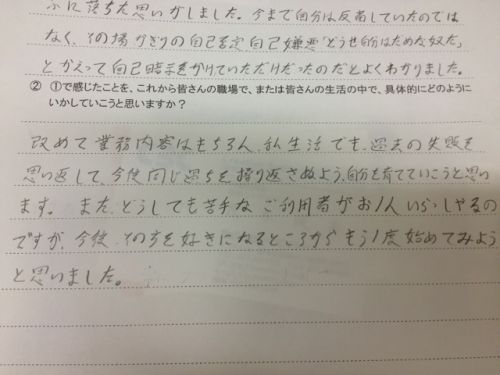 ふに落ちた思いがしました。今まで自分は反省していたのでは
なく、その場かぎりの自己否定自己嫌悪「どうせ自分はだめな奴だ」
とかえって自己暗示をかけていただけだったのだとよくわかりました。
② ①で感じたことを、これから皆さんの職場で、または皆さんの生活の中で、具体的にどのように
いかしていこうと思いますか?
改めて業務内容はもちろん、私生活でも、過去の失敗を
思い返して、今後同じ過ちを繰り返さぬよう、自分を育てていこうと思い
ます。また、どうしても苦手なご利用者がお1人いらっしゃるの
ですが、今後、その方を好きになるところからもう1度始めてみよう
と思いました。